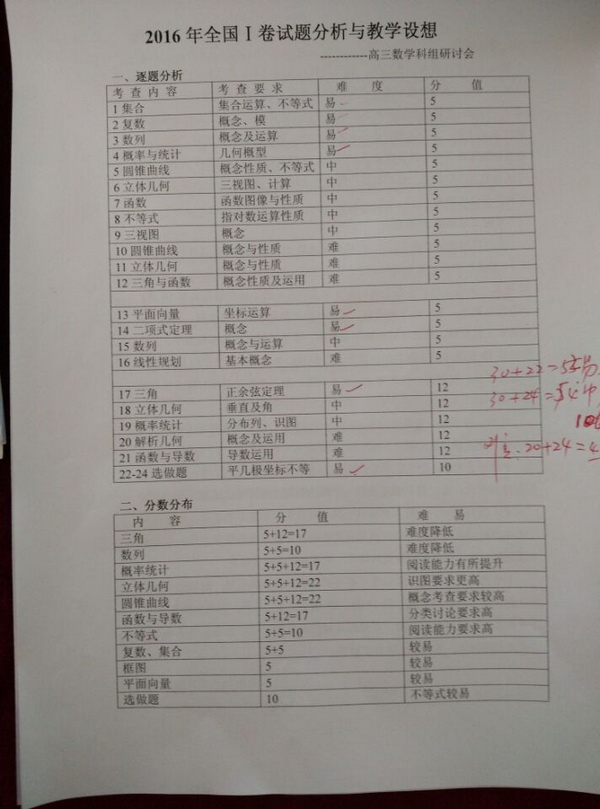 2016 年全国 I 卷试题分析与教学设想
------------高三数学科组研讨会
一、逐题分析
考 查 内 容 考 查 要 求 难 度 分 值
1 集合 集合运算、不等式 易 5
2 复数 概念、模 易 5
3 数列 概念及运算 易 5
4 概率与统计 几何概型 易 5
5 圆锥曲线 概念性质、不等式 中 5
6 立体几何 三视图、计算 中 5
7 函数 函数图像与性质 中 5
8 不等式 指对数运算性质 中 5
9 三视图 概念 中 5
10 圆锥曲线 概念与性质 难 5
11 立体几何 概念与性质 难 5
12 三角与函数 概念性质及运用 难 5
13 平面向量 坐标运算 易 5
14 二项式定理 概念 易 5
15 数列 概念与运算 中 5
16 线性规划 基本概念 难 5
30+22=52易
17 三角 正余弦定理 易 12
30+24=54中
18 立体几何 垂直及角 中 12
19 概率统计 分布列、识图 中 12
20 解析几何 概念及运用 难 12
难:20+24=4
21 函数与导数 导数运用 难 12
22-24 选做题 平几极坐标不等 易 10
二、分数分布
内 容 分 值 难 易
三角 5+12=17 难度降低
数列 5+5=10 难度降低
概率统计 5+5+12=17 阅读能力有所提升
立体几何 5+5+12=22 识图要求更高
圆锥曲线 5+5+12=22 概念考查要求较高
函数与导数 5+12=17 分类讨论要求高
不等式 5+5=10 阅读能力要求高
复数、集合 5+5 较易
框图 5 较易
平面向量 5 较易
选做题 10 不等式较易